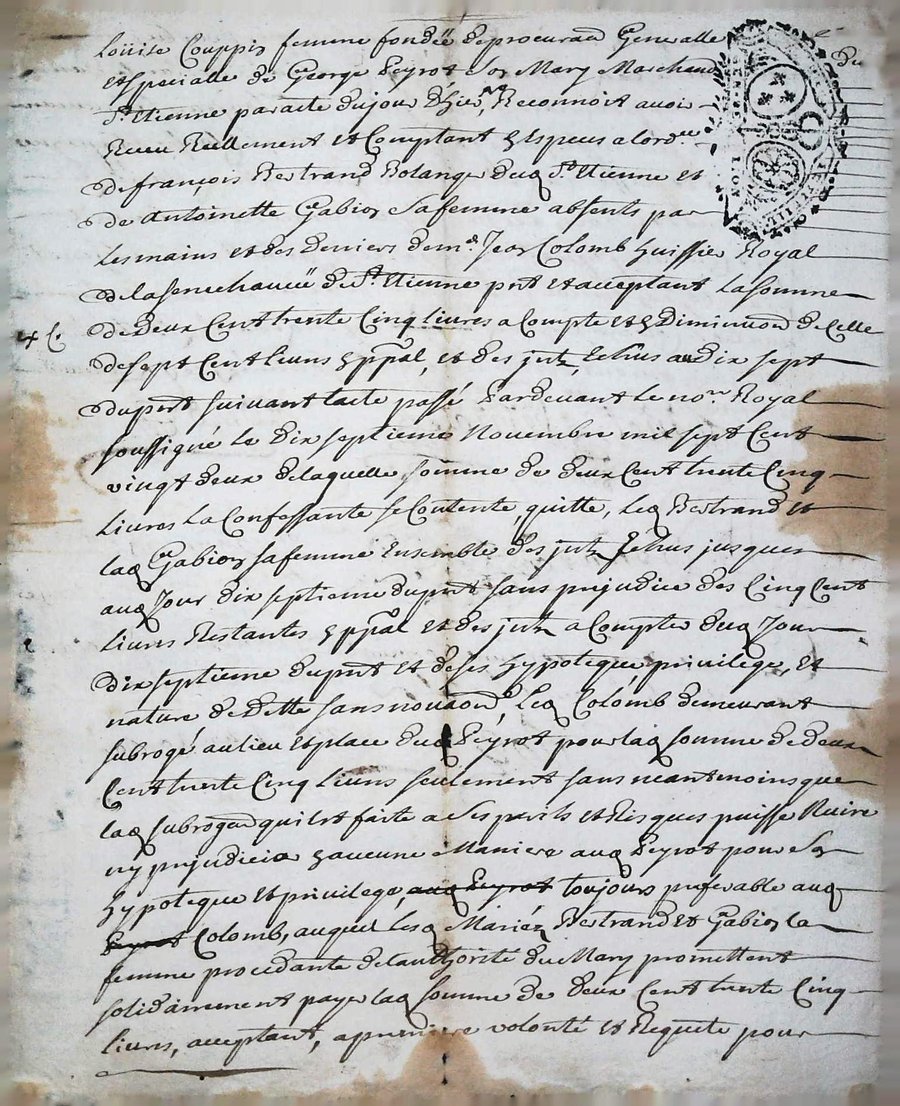 Loüise Couppin femme fondée de procuraõn Generalle
et specialle de George Peyrot son Mary Marchand
St. Etienne par acte du jour d'hier, Reconnoit avoir
Receu Reellement et Comptant en Especes a lordre
de françois Bertrand Bolanger dud St. Etienne et
de Antoinette Gabion sa femme absents par
Les mains et des deniers de me. Jean Colomb huissier Royal
de la senechaucée de St. Etienne pnt et acceptant La somme
de Deux Cent trente Cinq livres a Compte et en Diminuõn de Celle
de sept Cent livres en ppãl, et des jnts Echus au dix sept
du pnt suivant lacte passé Pardevant le nore Royal
soussigné le dix septieme Novembre mil sept Cent
vingt deux de laquelle somme de deux Cent trente Cinq
Livres La Confessante se Contente, quitte, led Bertrand et
lad Gabion sa femme Ensemble des jnts Echus jusques
aud Jour dix septieme du pnt sans prejudice des Cinq Cent
livres Restantes en ppãl et des jnts a Compter dud Jour
dix septieme du pnt et de ses hypoteque, privilege, Et
nature de dette sans novaõn, Led Colomb demeurant
subrogé au lieu et place dud Peyrot pour lad somme de deux
Cent trente Cinq livres seulement sans neantmoins que
lad subrogaõn qui est faite a ses perils et Risques puisse Nuire
ny prejudicier en aucune Maniere aud Peyrot pour son
hypoteque et privilege, aud Peyrot toujours preferable aud
Peyrot Colomb, auquel lesd Mariés Bertrand et Gabion la
femme procedante de l'authorité du Mary promettent
solidairement payer lad somme de deux Cent trente Cinq
livres, acceptant, a premiere volonté et Requete pour